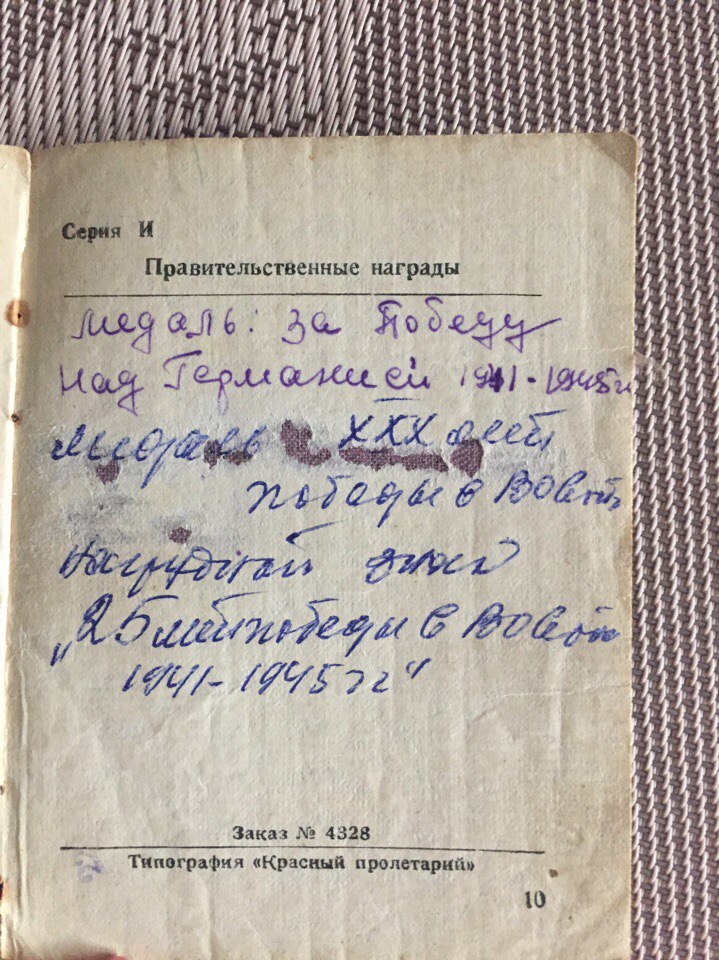 Серия И
Правительственные награды
медаль: за Победу
над Германией 1941-1945г
медаль XXX лет
победы в ВОвойн
нагрудной знак
„25 лет победы в ВОвойн
1941-1945гг"
Заказ № 4328
Типография «Красный пролетарий»
10